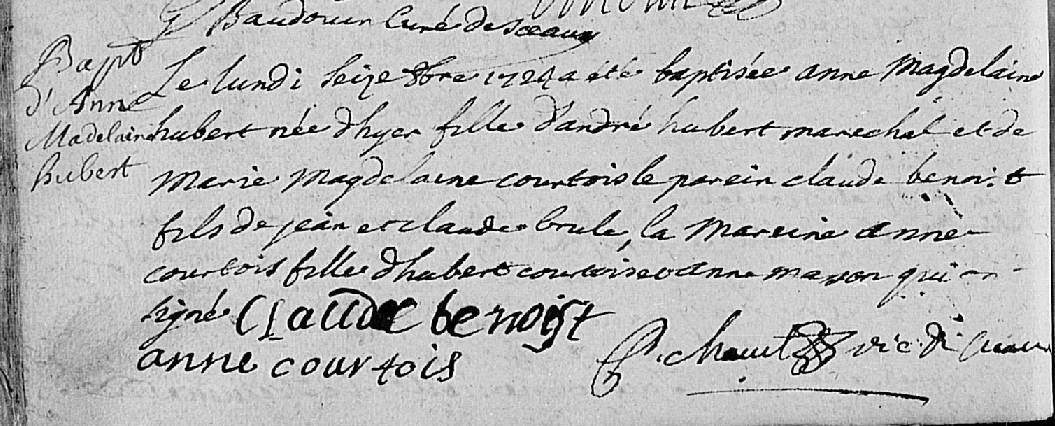 Baudouin Curé de sceaux
Bapt
d'Anne
Madelaine
hubert
Le lundi seize 8bre a été baptisée anne Magdelaine
hubert née d'hyer fille d'andré hubert marechal et de
Marie Magdelaine courtois le parein claude benoist
fils de jean et claude brule, la Mareine anne
courtois fille d'hubert courtois et anne masson qui on
signé Claude benoist
anne courtois